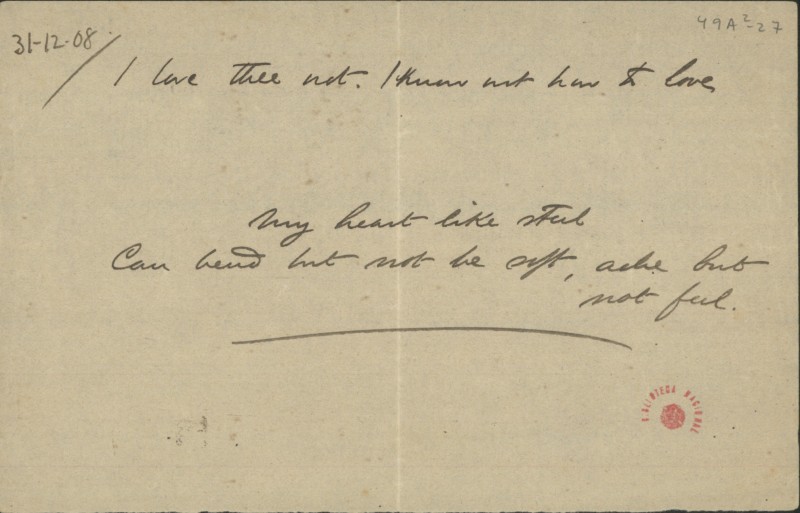 49A²-27
31-12-08
I love thee not. I know not how to love
My heart like steel
Can bend but not be soft, ache but
not feel.
BIBLIOTECA NACIONAL